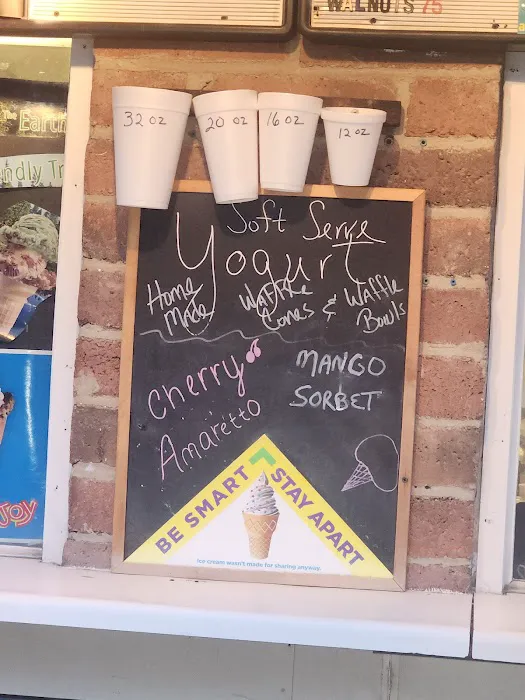 WALNUTS 75
The Earth
ndly Tr
32 oz
20 oz
16 oz
12 oz
Soft Serve
Yogurt
Home Made
Waffle Cones & Waffle Bowls
Cherry
Amaretto
MANGO
SORBET
BE SMART STAY APART
Ice cream wasn't made for sharing anyway.
JOY